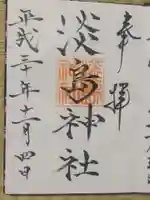 奉拝
淡島神社
平成三十年十一月四日